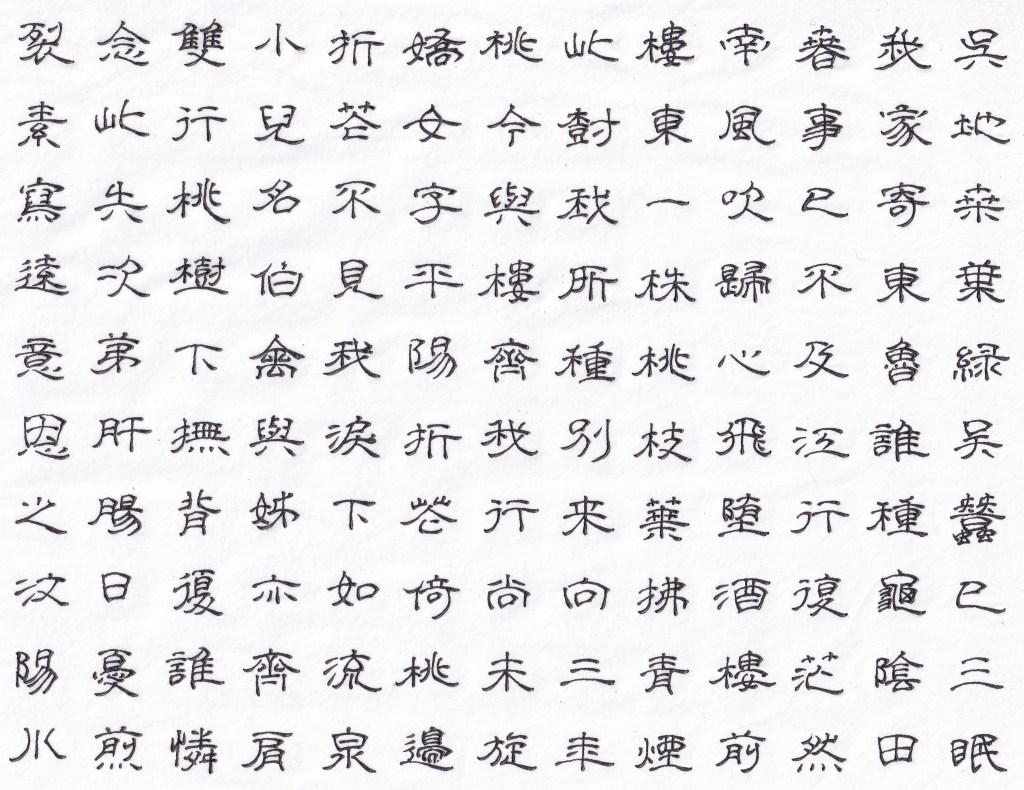 吳地桒葉緑吴蠶已三眠
我家寄東魯誰種龜陰田
春事已不及江行復茫然
南風吹歸心飛墮酒樓前
樓東一株桃枝葉拂青煙
此樹我所種別来向三年
桃今與樓齊我行尚未旋
嬌女字平陽折花倚桃邊
折花不見我淚下如流泉
小兒名伯禽與姊亦齊肩
雙行桃樹下撫背復誰憐
念此失次第肝腸日憂煎
裂素寫遠意因之汶陽川